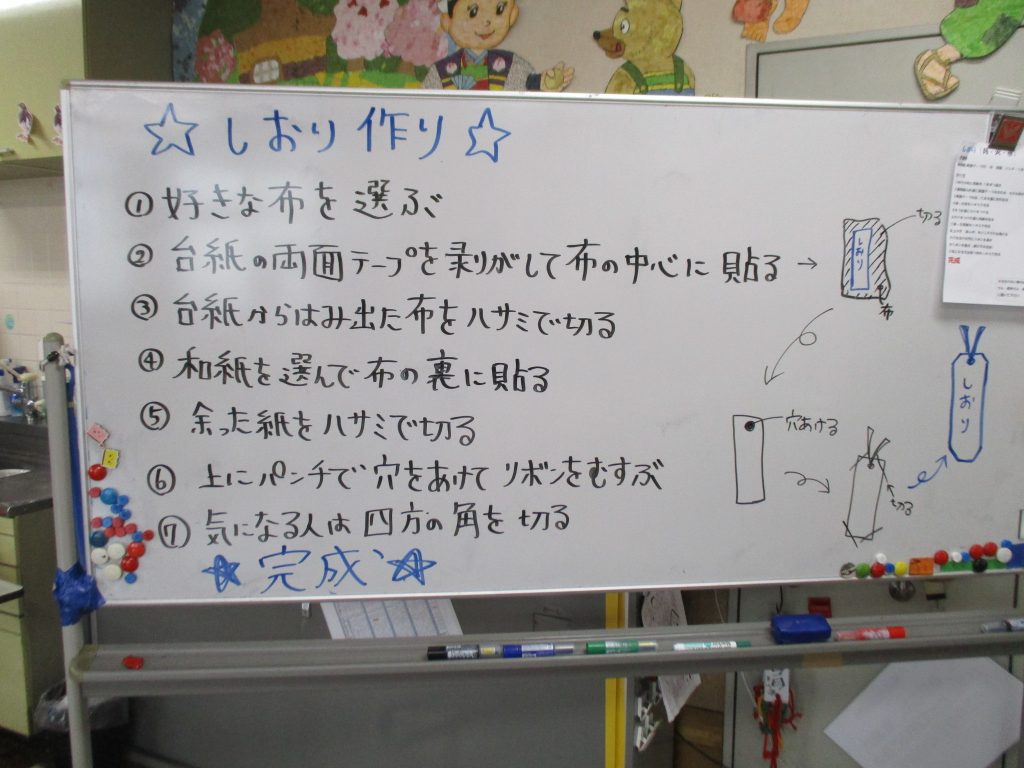 ☆しおり作り☆
①好きな布を選ぶ
②台紙の両面テープを剥りがして布の中心に貼る→
③台紙からはみ出た布をハサミで切る
④和紙を選んで布の裏に貼る
⑤余った紙をハサミで切る
⑥上にパンチで穴をあけてリボンをむすぶ
⑦気になる人は四方の角を切る
☆完成☆
切る
しおり
布
穴あける
切る
しおり
完成